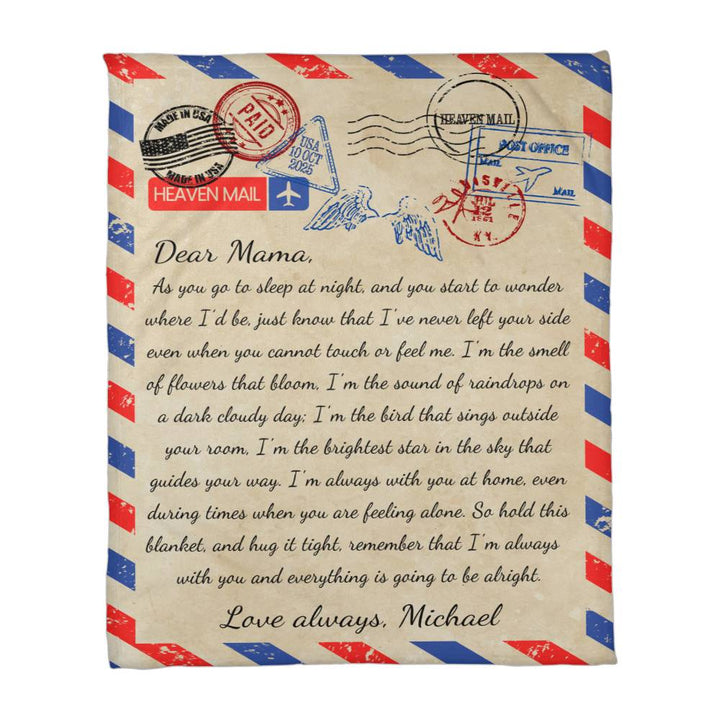 MADE IN USA
MADE IN USA
PAID
USA
10 OCT
2025
HEAVEN MAIL
HEAVEN MAIL
POST OFFICE
MAIL
MAIL
12
KY.
Dear Mama,
As you go to sleep at night, and you start to wonder
where I'd be, just know that I've never left your side
even when you cannot touch or feel me. I'm the smell
of flowers that bloom, I'm the sound of raindrops on
a dark cloudy day; I'm the bird that sings outside
your room, I'm the brightest star in the sky that
guides your way. I'm always with you at home, even
during times when you are feeling alone. So hold this
blanket, and hug it tight, remember that I'm always
with you and everything is going to be alright.
Love always, Michael